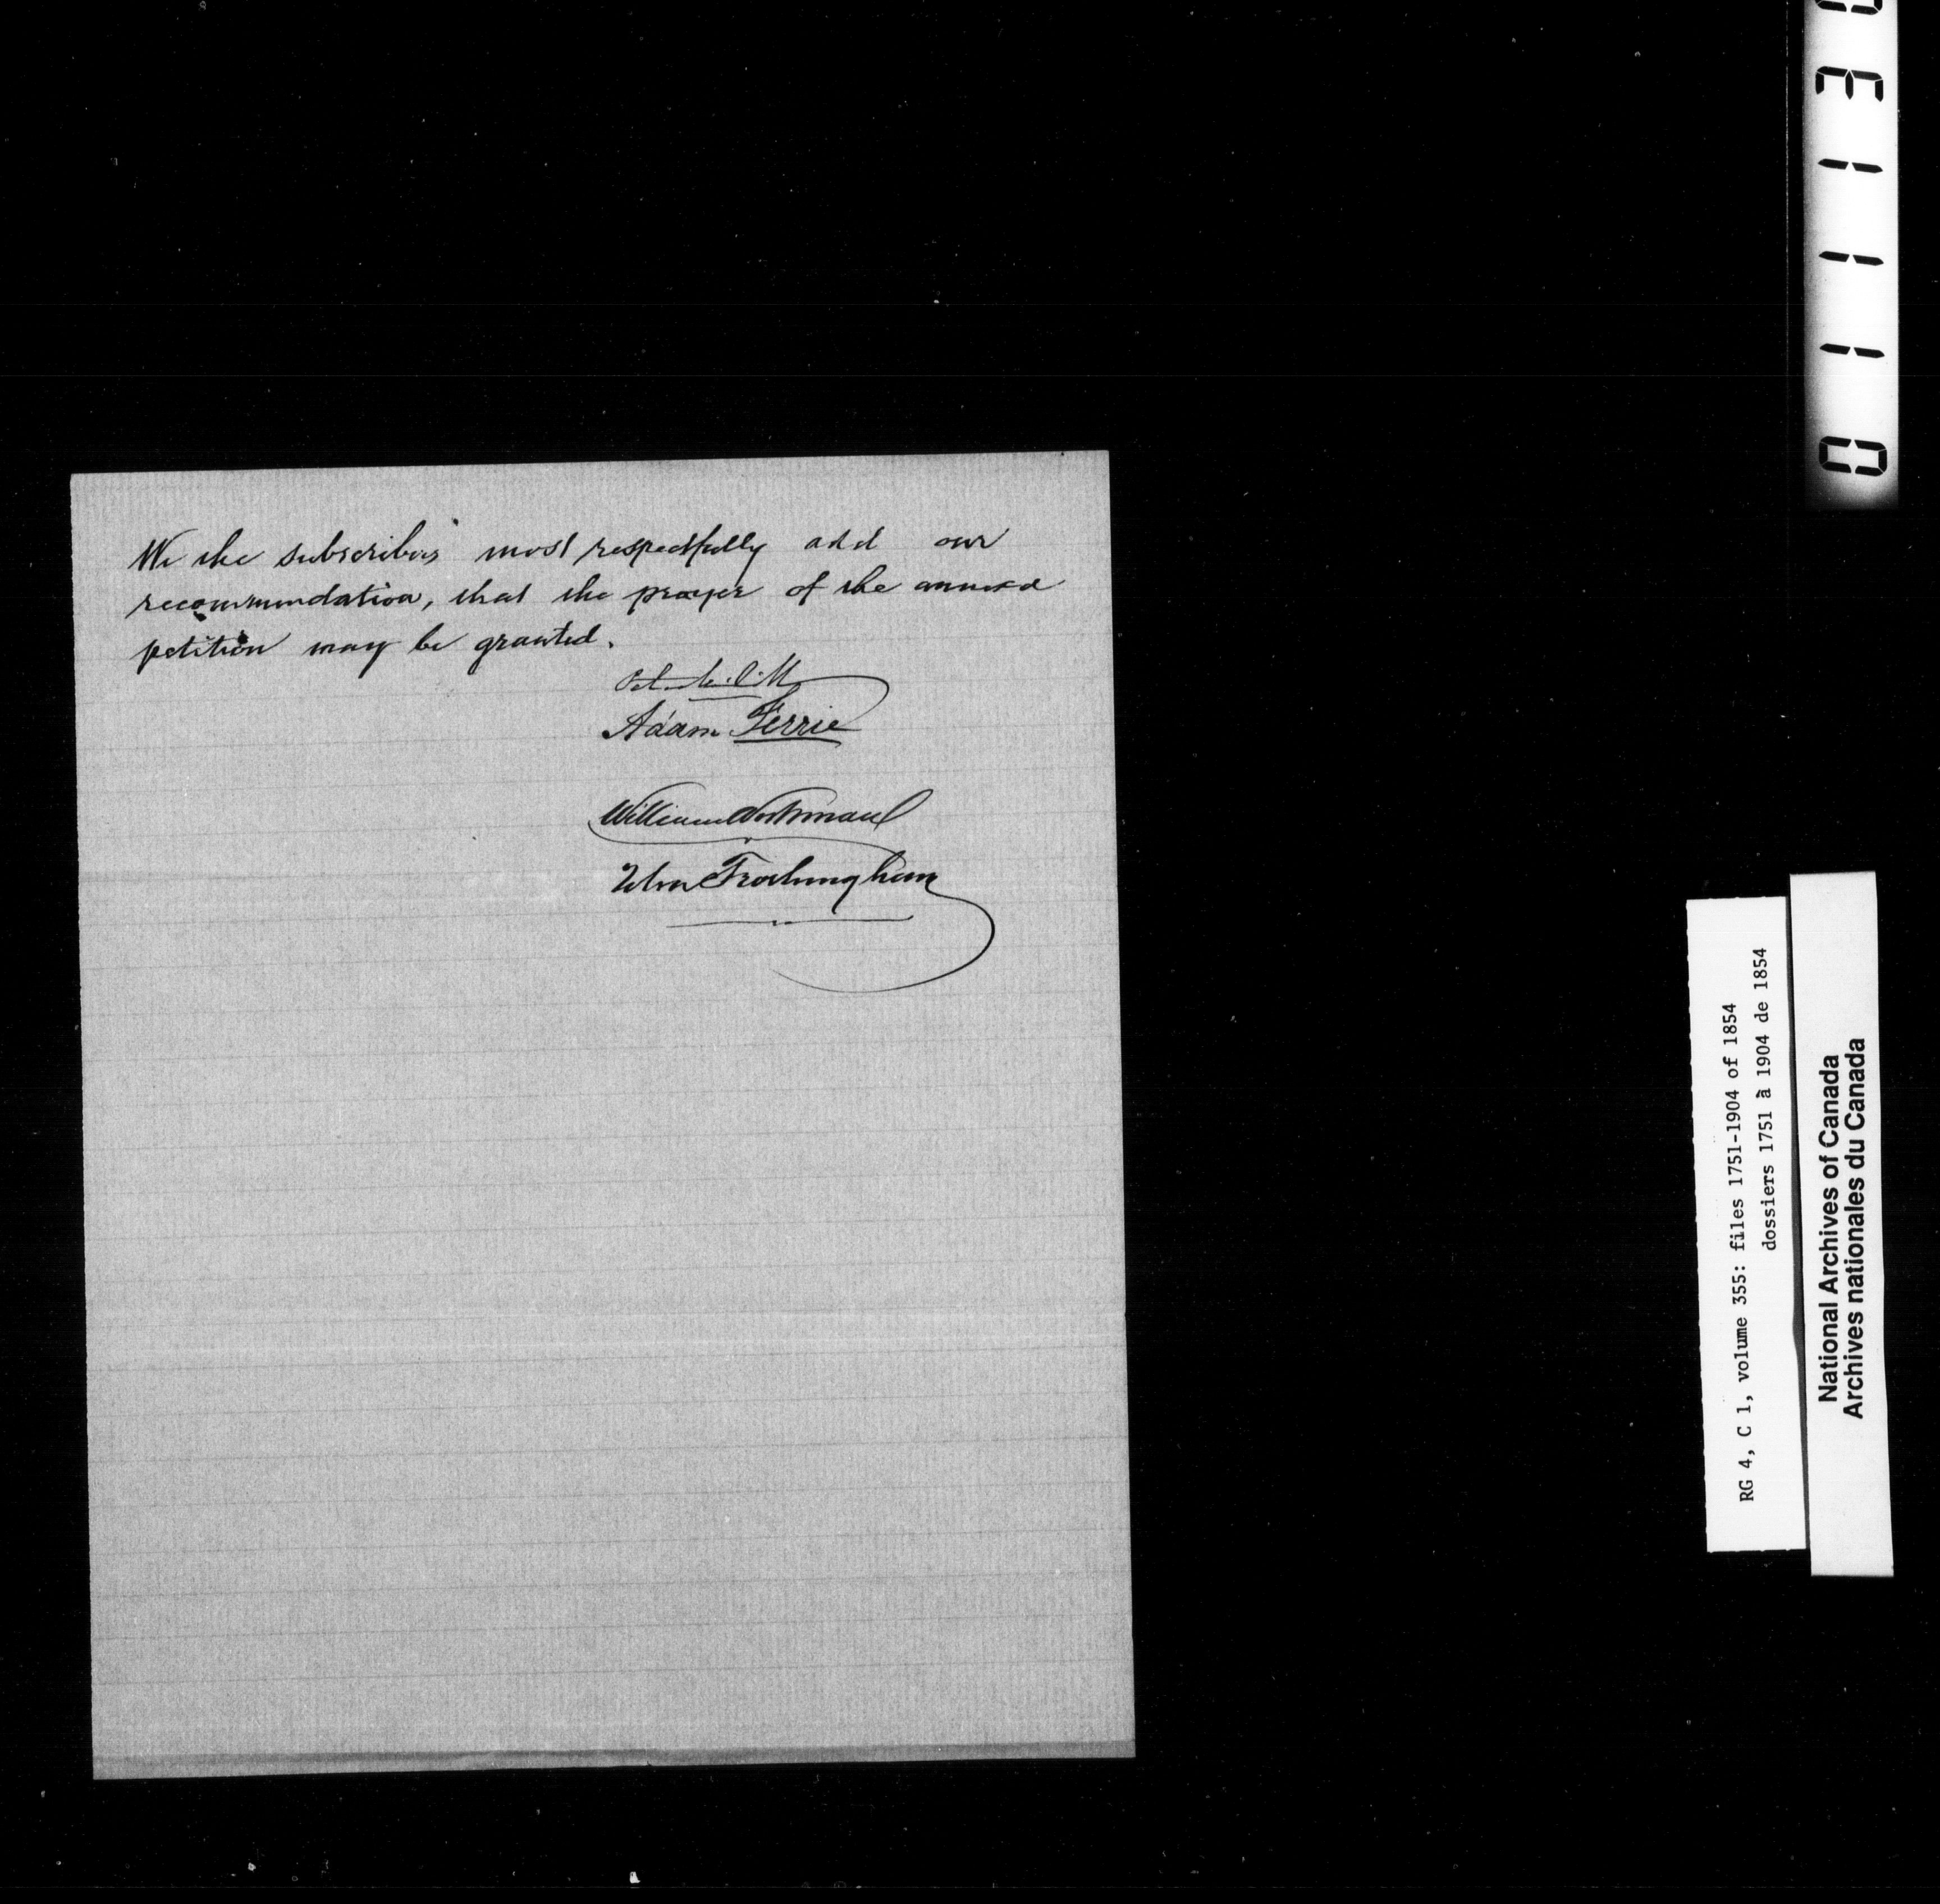 We the subscribers most respectfully add our
recommendation, that the prayer of the annexed
petition may be granted.
Adam Ferrie
William Workman
John Frothingham
01113
RG 4, C 1, volume 355: files 1751-1904 of 1854
dossiers 1751 à 1904 de 1854
National Archives of Canada
Archives nationales du Canada